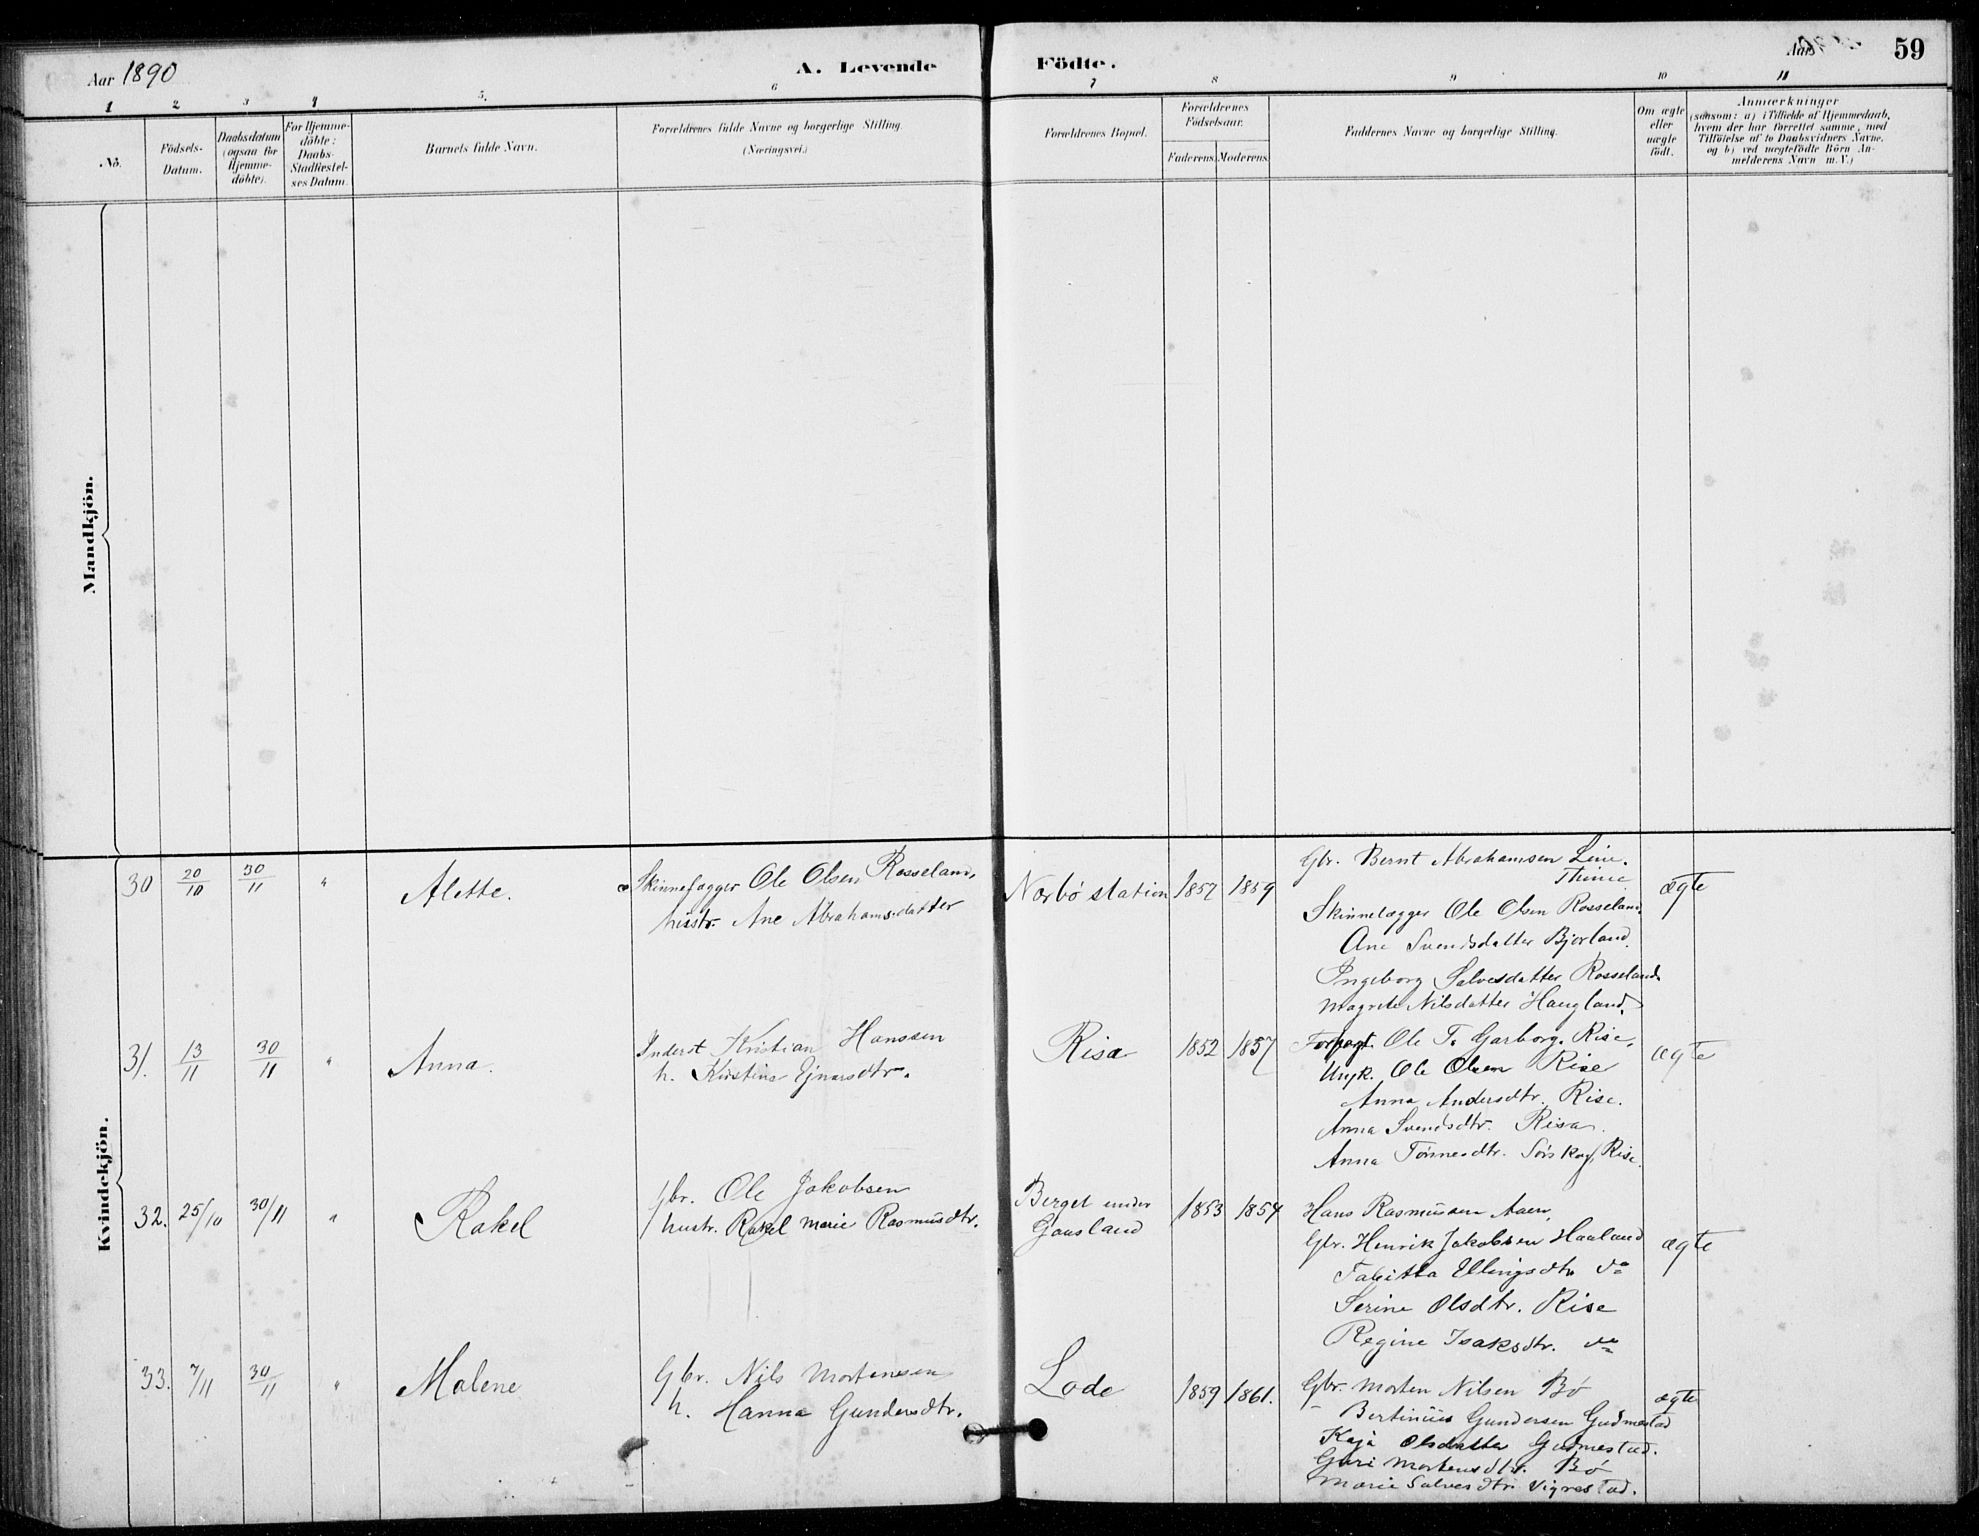 Aar 1890
A. Levende
Födte.
Aar
59
1
2
3
4
5.
6
7
8
9
10
11
No.
Födsels-
Datum.
Daabsdatum
(ogsaa for
Hjemme-
döbte).
For Hjemme-
döbte:
Daabs-
Stadfæstel-
ses Datum.
Barnets fulde Navn.
Forældrenes fulde Navne og borgerlige Stilling.
(Næringsvei.)
Forældrenes Bopæl.
Forældrenes
Födselsaar.
Faderens.
Moderens.
Faddernes Navne og borgerlige Stilling.
Om ægte
eller
uægte
födt.
Anmærkninger
(saasom: a) i Tilfælde af Hjemmedaab,
hvem der har forrettet samme, med
Tilföielse af to Daabsvidners Navne,
og b) ved uægtefödte Börn An-
melderens Navn m.V.)
Mandkjön.
Kvindekjön.
30
20/10
30/11
"
Alette.
Skinnefægger Ole Olsen Rosseland,
hustr. Ane Abrahamsdatter
Nærbö station
1857
1859
Gbr. Bernt Abrahamsen Line.
Thime
Skinnelægger Ole Olsen Rosseland.
Ane Svendsdatter Bjorland.
Ingeborg Salvesdatter Rosseland.
Magrete Nilsdatter Haugland.
ægte
31.
13/11
30/11
"
Anna.
Inderst Kristian Hanssen
h. Kristine Ejnarsdtr.
Risa
1852
1857
Forpagt. Ole T. Garborg. Rise.
Ungk. Ole Olsen Rise
Anna Andersdtr. Rise.
Anna Svendsdtr. Risa.
Anna Tönnesdtr. Sörskog, Rise.
ægte
32.
25/10
30/11
"
Rakel
Gbr. Ole Jakobsen
hustr. Rakel Marie Rasmusdtr.
Berget under
Gausland
1853
1854
Hans Rasmussen Aaen,
Gbr. Henrik Jakobsen Haaland
Tabitta Ellingsdtr do
Serine Olsdtr. Rise
Regine Isaksdtr. do
ægte
33.
7/11
30/11
"
Malene
Gbr. Nils Mortensen
h. Hanna Gundersdtr.
Lode
1859
1861.
Gbr. Morten Nilsen Bö
Bertinius Gundersen Gudmestad
Kaja Olsdatter Gudmestad.
Guri Mortensdtr. Bö
Marie Salvesdtr. Vigrestad.
ægte